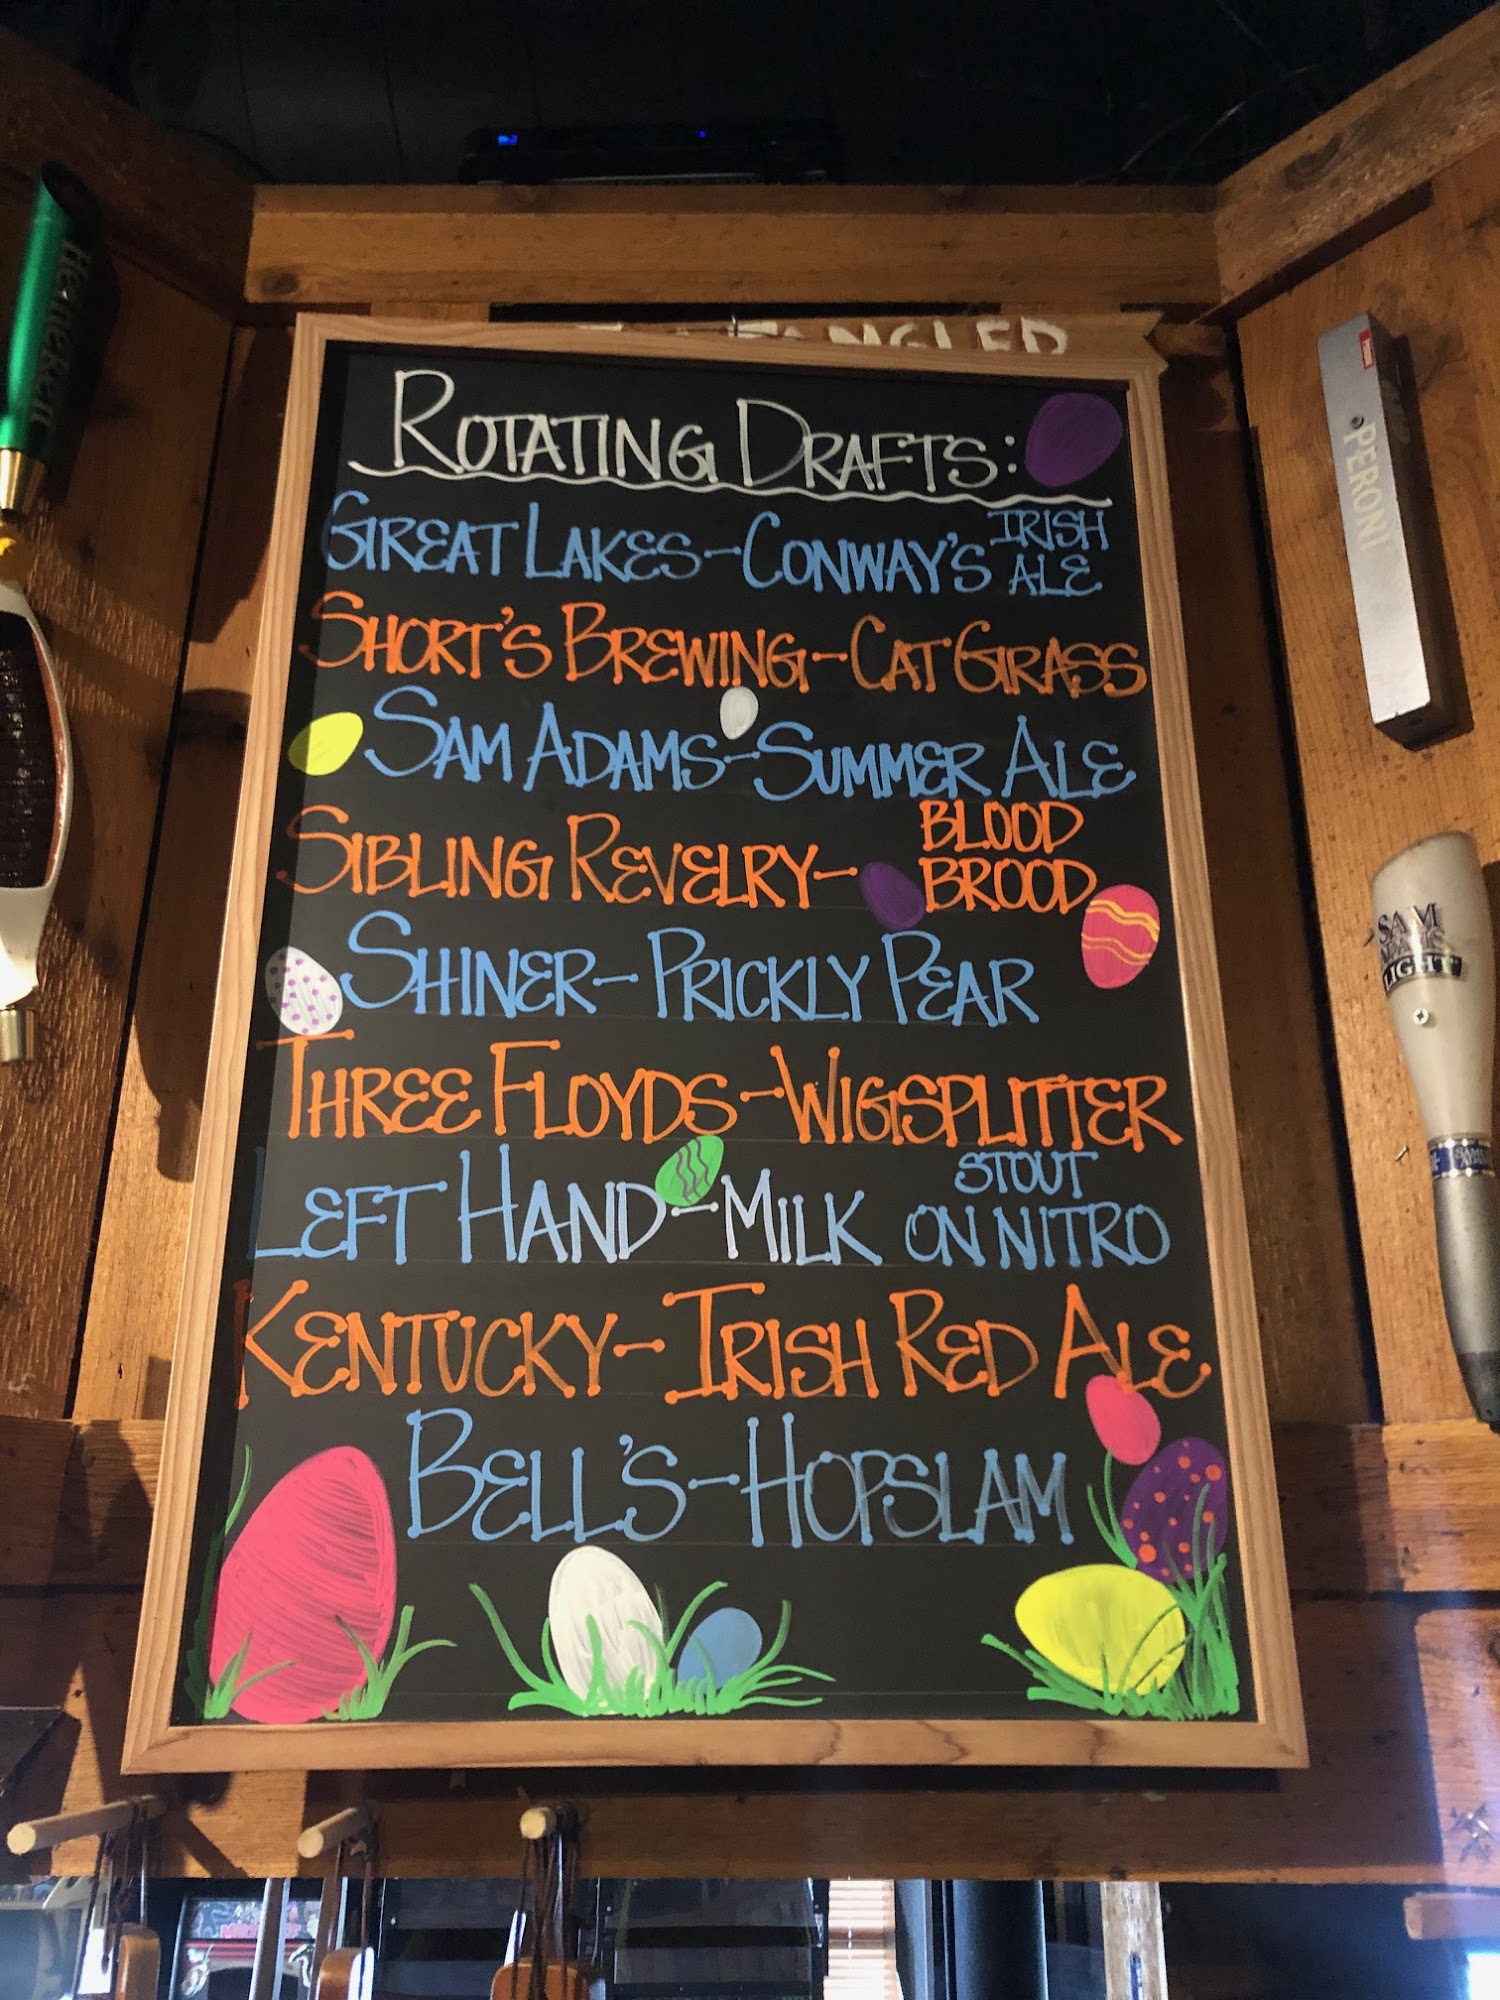 Heineken
TANGLER
ROTATING DRAFTS:
GREAT LAKES-CONWAY'S IRISH ALE
SHORT'S BREWING-CAT GRASS
SAM ADAMS-SUMMER ALE
SIBLING REVELRY- BLOOD BROOD
SHINER-PRICKLY PEAR
THREE FLOYDS-WIGSPLITTER
LEFT HAND-MILK STOUT ON NITRO
KENTUCKY-IRISH RED ALE
BELL'S-HOPSLAM
PERONI
SAM
ADAMS
LIGHT